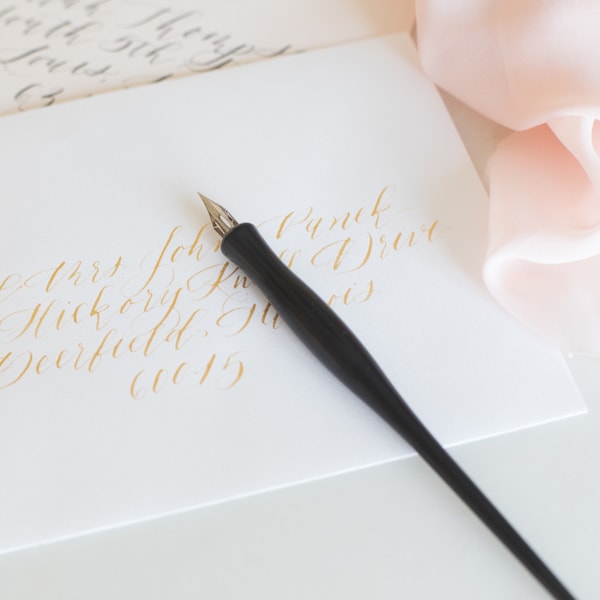 Thomps
5th S
Louis,
63
Mrs. John Panek
Hickory Knoll Drive
Deerfield, Illinois
60015